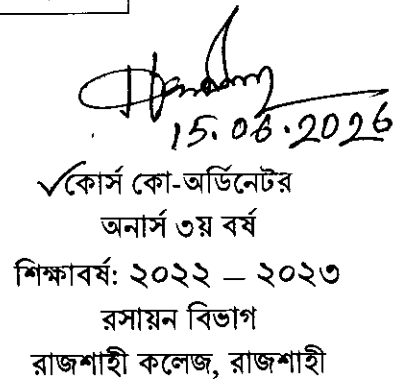 15.06.2026
✓কোর্স কো-অর্ডিনেটর
অনার্স ৩য় বর্ষ
শিক্ষাবর্ষ: ২০২২ – ২০২৩
রসায়ন বিভাগ
রাজশাহী কলেজ, রাজশাহী